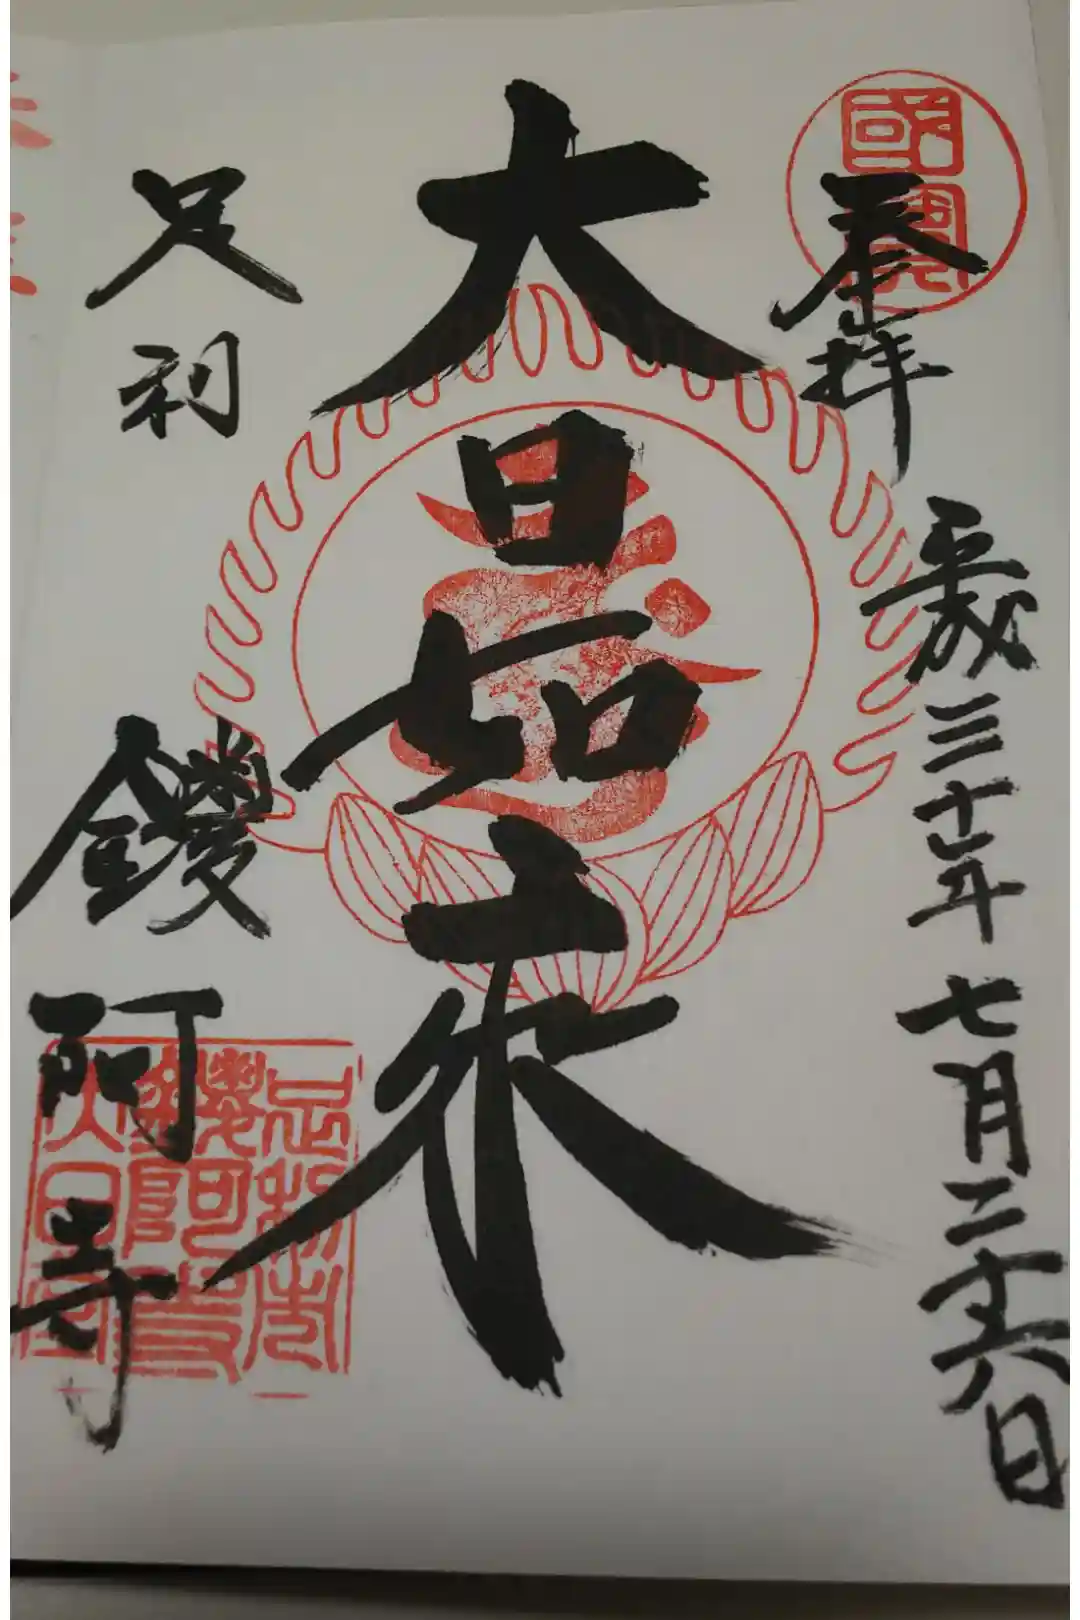 國寶
奉拝
平成三十年七月二十六日
大日如来
足利
鑁阿寺
足利市
鑁阿寺